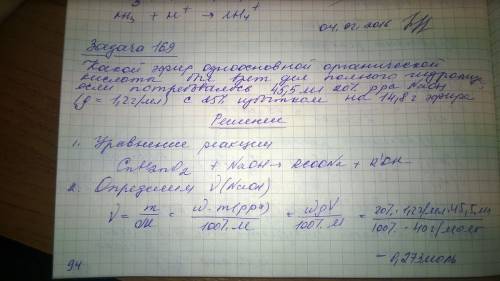 NH₃ + H⁺ → NH₄⁺
04.02.2016
Задача 169
Какой эфир одноосновной органической
кислоты был взят для полного гидролиза,
если потребовалось 45,5 мл 20% р-ра NaOH
(ρ = 1,2 г/мл) с 25% избытком на 14,8 г эфира
Решение
1. Уравнение реакции
CnH2nO2 + NaOH → RCOONa + R'OH
2. Определяем ν(NaOH)
ν = m/M = ω · m(р-ра)/100% · M = ωρV/100% · M = 20% · 1,2 г/мл · 45,5 мл/100% · 40 г/моль
= 0,273 моль
94